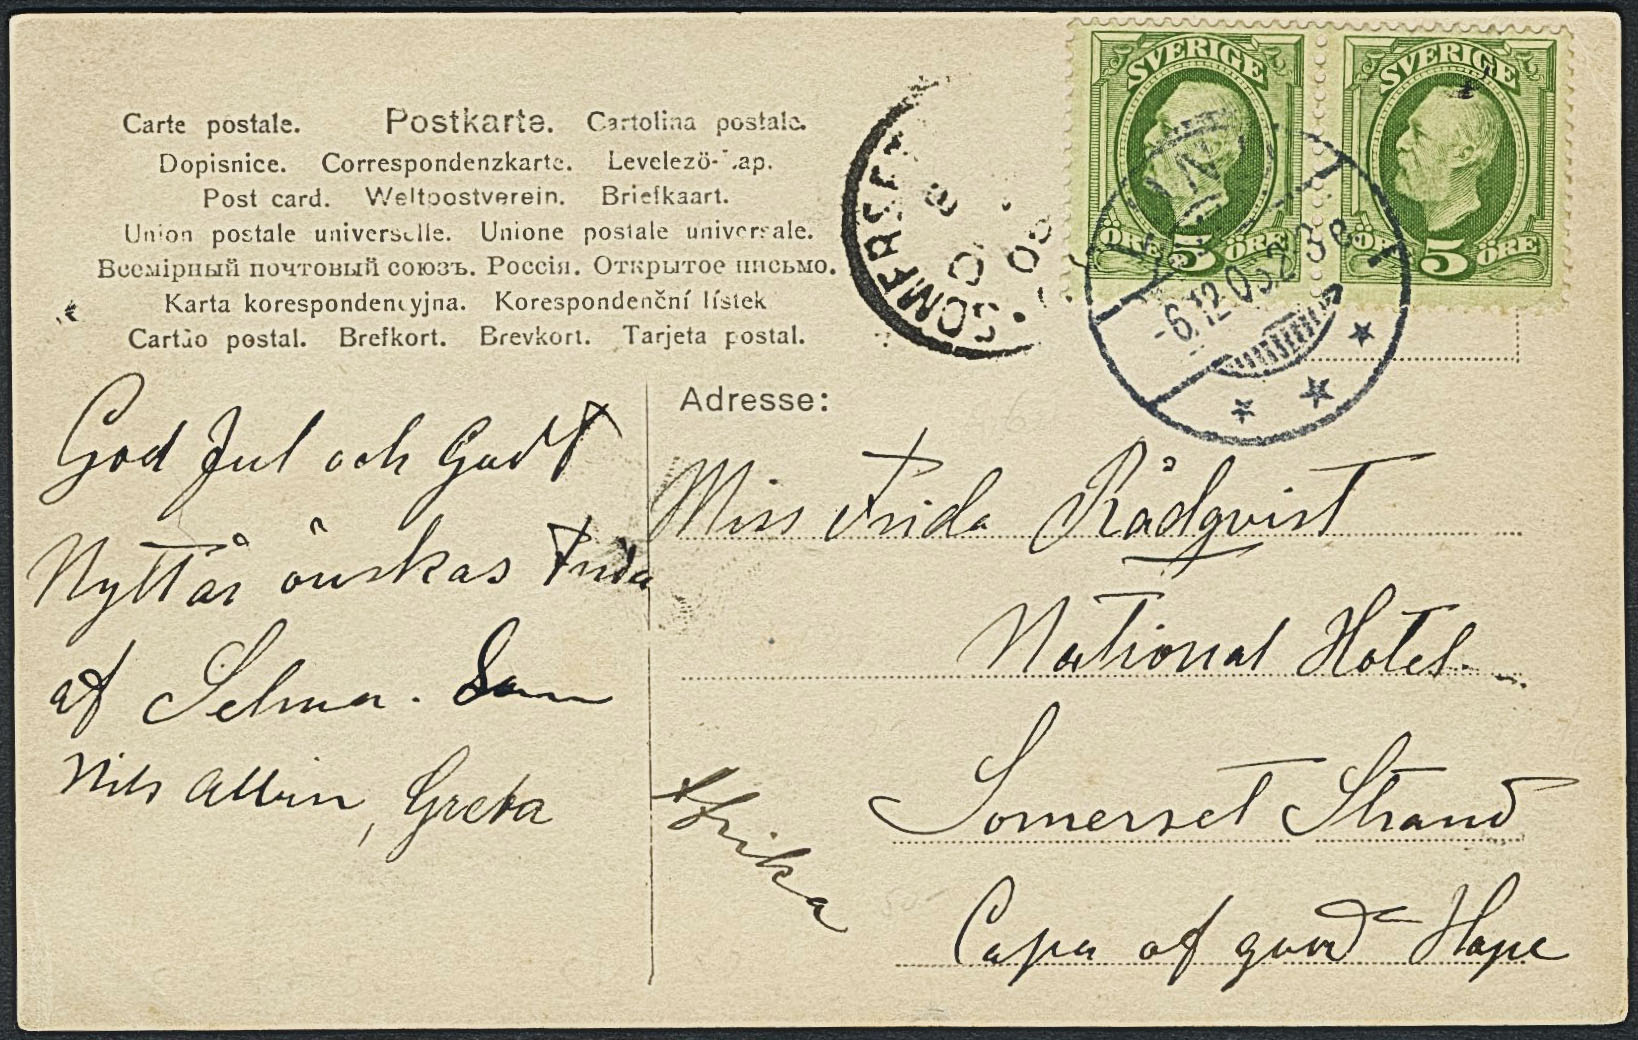 SVERIGE SVERIGE
ÖRE 5 ÖRE ÖRE 5 ÖRE
SOMERSET
-6.12.05.2-3e
Carte postale. Postkarte. Cartolina postale.
Dopisnice. Correspondenzkarte. Levelezö-Lap.
Post card. Weltpostverein. Briefkaart.
Union postale universelle. Unione postale universale.
Всемірный почтовый союзъ. Россія. Открытое письмо.
Karta korespondencyjna. Korespondenční lístek
Cartão postal. Brefkort. Brevkort. Tarjeta postal.
God Jul och Godt
Nyttår önskas Frida
af Selma. Sam
Nils Albin, Greta
Adresse:
Miss Frida Rådqvist
National Hotel.
Somerset Strand
Capa of good Hope
Afrika